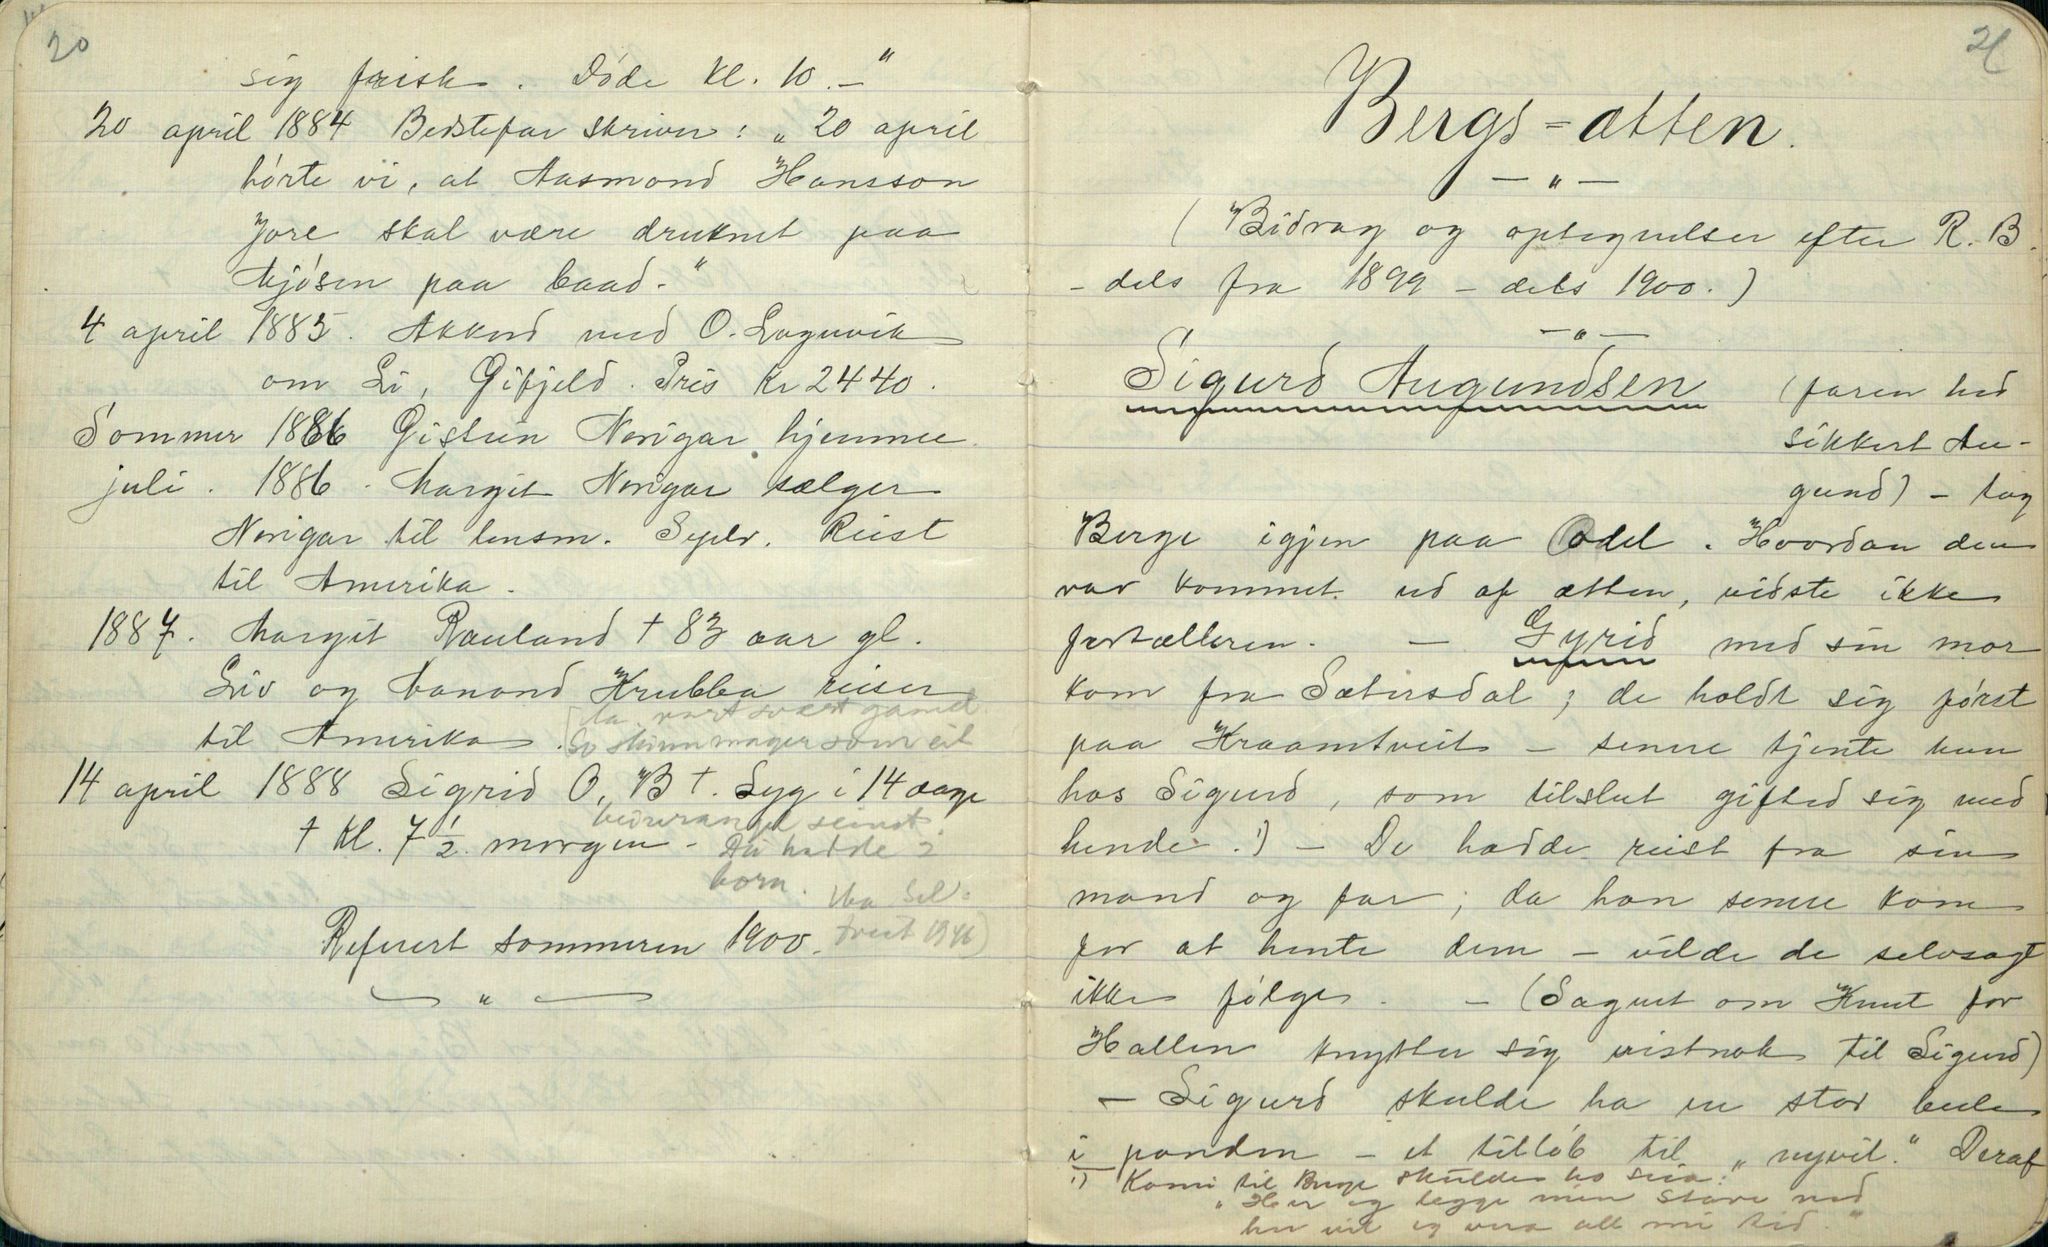 20
sig frisk. Døde kl. 10.—"
20 april 1884 Bedstefar skriver: „20 april
hørte vi, at Aasmond Hansson
Jore skal være druknet paa
Mjøsen paa baad."
4 april 1885. Akkord med O. Lognvik
om Li, Gifjeld. Pris kr 2440.
Sommer 1886 Gistein Norigar hjemme.
juli. 1886. Margit Norigar sælger
Norigar til lensm. Reist
til Amerika.
1887. Margit Rauland † 83 aar gl.
Liv og Aanond Krubba reiser
til Amerika.
[Ho vart svært gamal.
So skinnmager som eit
14 april 1888 Sigrid O, B †. Syg i 14 dage
seinst.
† kl. 7 1/2 morgen -
Dei hadde 2
born.
Refereret sommeren 1900.
1946)
— " —
21
Bergs=ætten.
— " —
(Bidrag og optegnelser efter R. B.
- dels fra 1899 - dels 1900.)
— " —
Sigurd Augundsen (faren hed
sikkert Au-
gund) - tog
Berge igjen paa Odel. Hvordan den
var kommet ud af ætten, vidste ikke
fortælleren. — Gyrid med sin mor
kom fra Sætersdal; de holdt sig først
paa Kraamtveit - senere tjente hun
hos Sigurd, som tilslut gifted sig med
hende.¹) - De hadde reist fra sin
mand og far; da han senere kom
for at hente dem - vilde de selvsagt
ikke følge. - (Sagnet om Knut for
Hallen knytter sig vistnok til Sigurd)
- Sigurd skulde ha en stor bule
i panden - et tilløb til „nyvil." Deraf
¹) Komi til Berge skulde ho seia:
„Her eg legge min stave ned
her vil eg vera all mi tid."